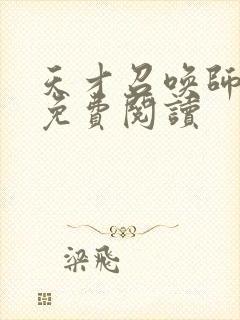 天才召喚師
免費閱讀
梁飛